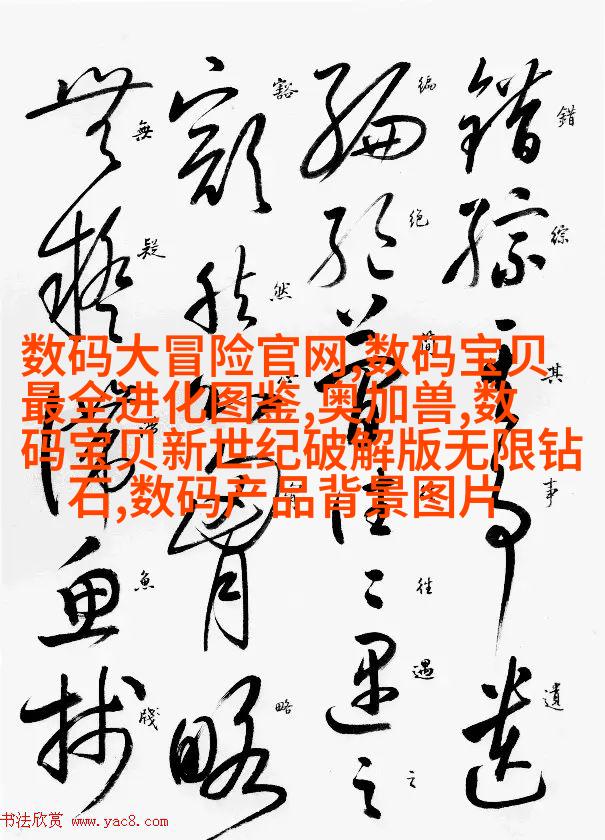 錯綜其事遺
编绝简往往遇之
豁然心胸略
無疑滯魚牋
数码大冒险官网,数码宝贝
最全进化图鉴,奥加兽,数
码宝贝新世纪破解版无限钻
石,数码产品背景图片
书法欣赏 www.yac8.com